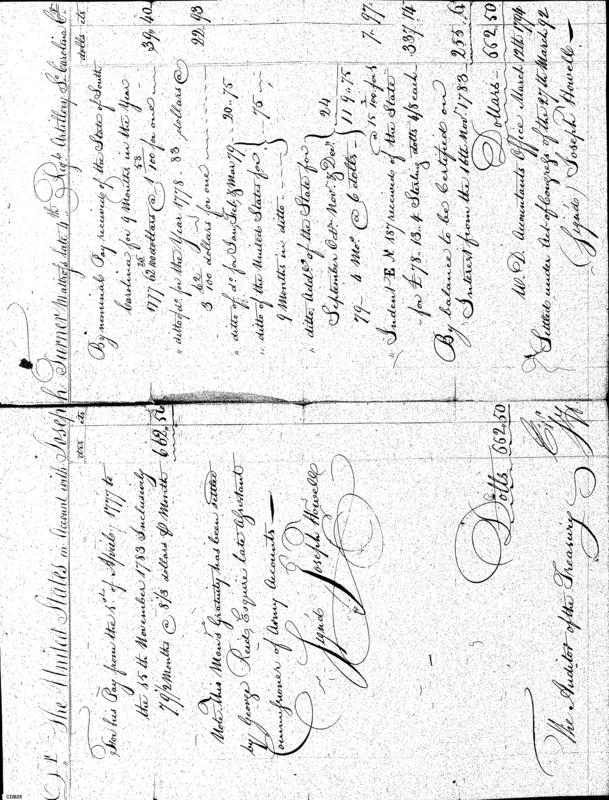 Dr. The United States in Account with Joseph Turner Matross late 4th Regt. Artillery So. Carolina Cr.
dlls cts
For his Pay from the 1st of April 1777 to
the 15th November 1783 Inclusively
79 1/2 Months @ 8 1/3 dollars P Month 662.50
Note, this Man's Gratuity has been settled
by George Reid, Esquire late Assistant
Commissioner of Army Accounts —
Signd Joseph Howell
Dolls 662.50
The Auditor of the Treasury
dolls cts
By nominal Pay received of the State of South
Carolina for 9 Months in the Year
1777 62 dollars @ 1 100 for one — 39.40
" ditto of do. for the Year 1778 83 dollars @
3 62 100 dollars for one — 22.93
" ditto of do. for Jany. Feb. & Mar. 79 . . 20..75
" ditto of the United States for
9 Months in ditto — 75
" ditto Addl. of the State for
September Octr. Novr. & Decr. 24
79 — 4 Mos. @ 6 dollars — 119..75
@ 15 100 for 1 7.97
" Indent E No. 187 received of the State
for £78.13.4 Sterling dolls 4/8 each — 337.14
By balance to be Certified on
Interest from the 16th Novr. 1783 255.
Dollars — 662.50
W. D. Accountants Office March 12th 1794
Settled under Act of Congress of the 27th March 92
Signd Joseph Howell —
CDB25